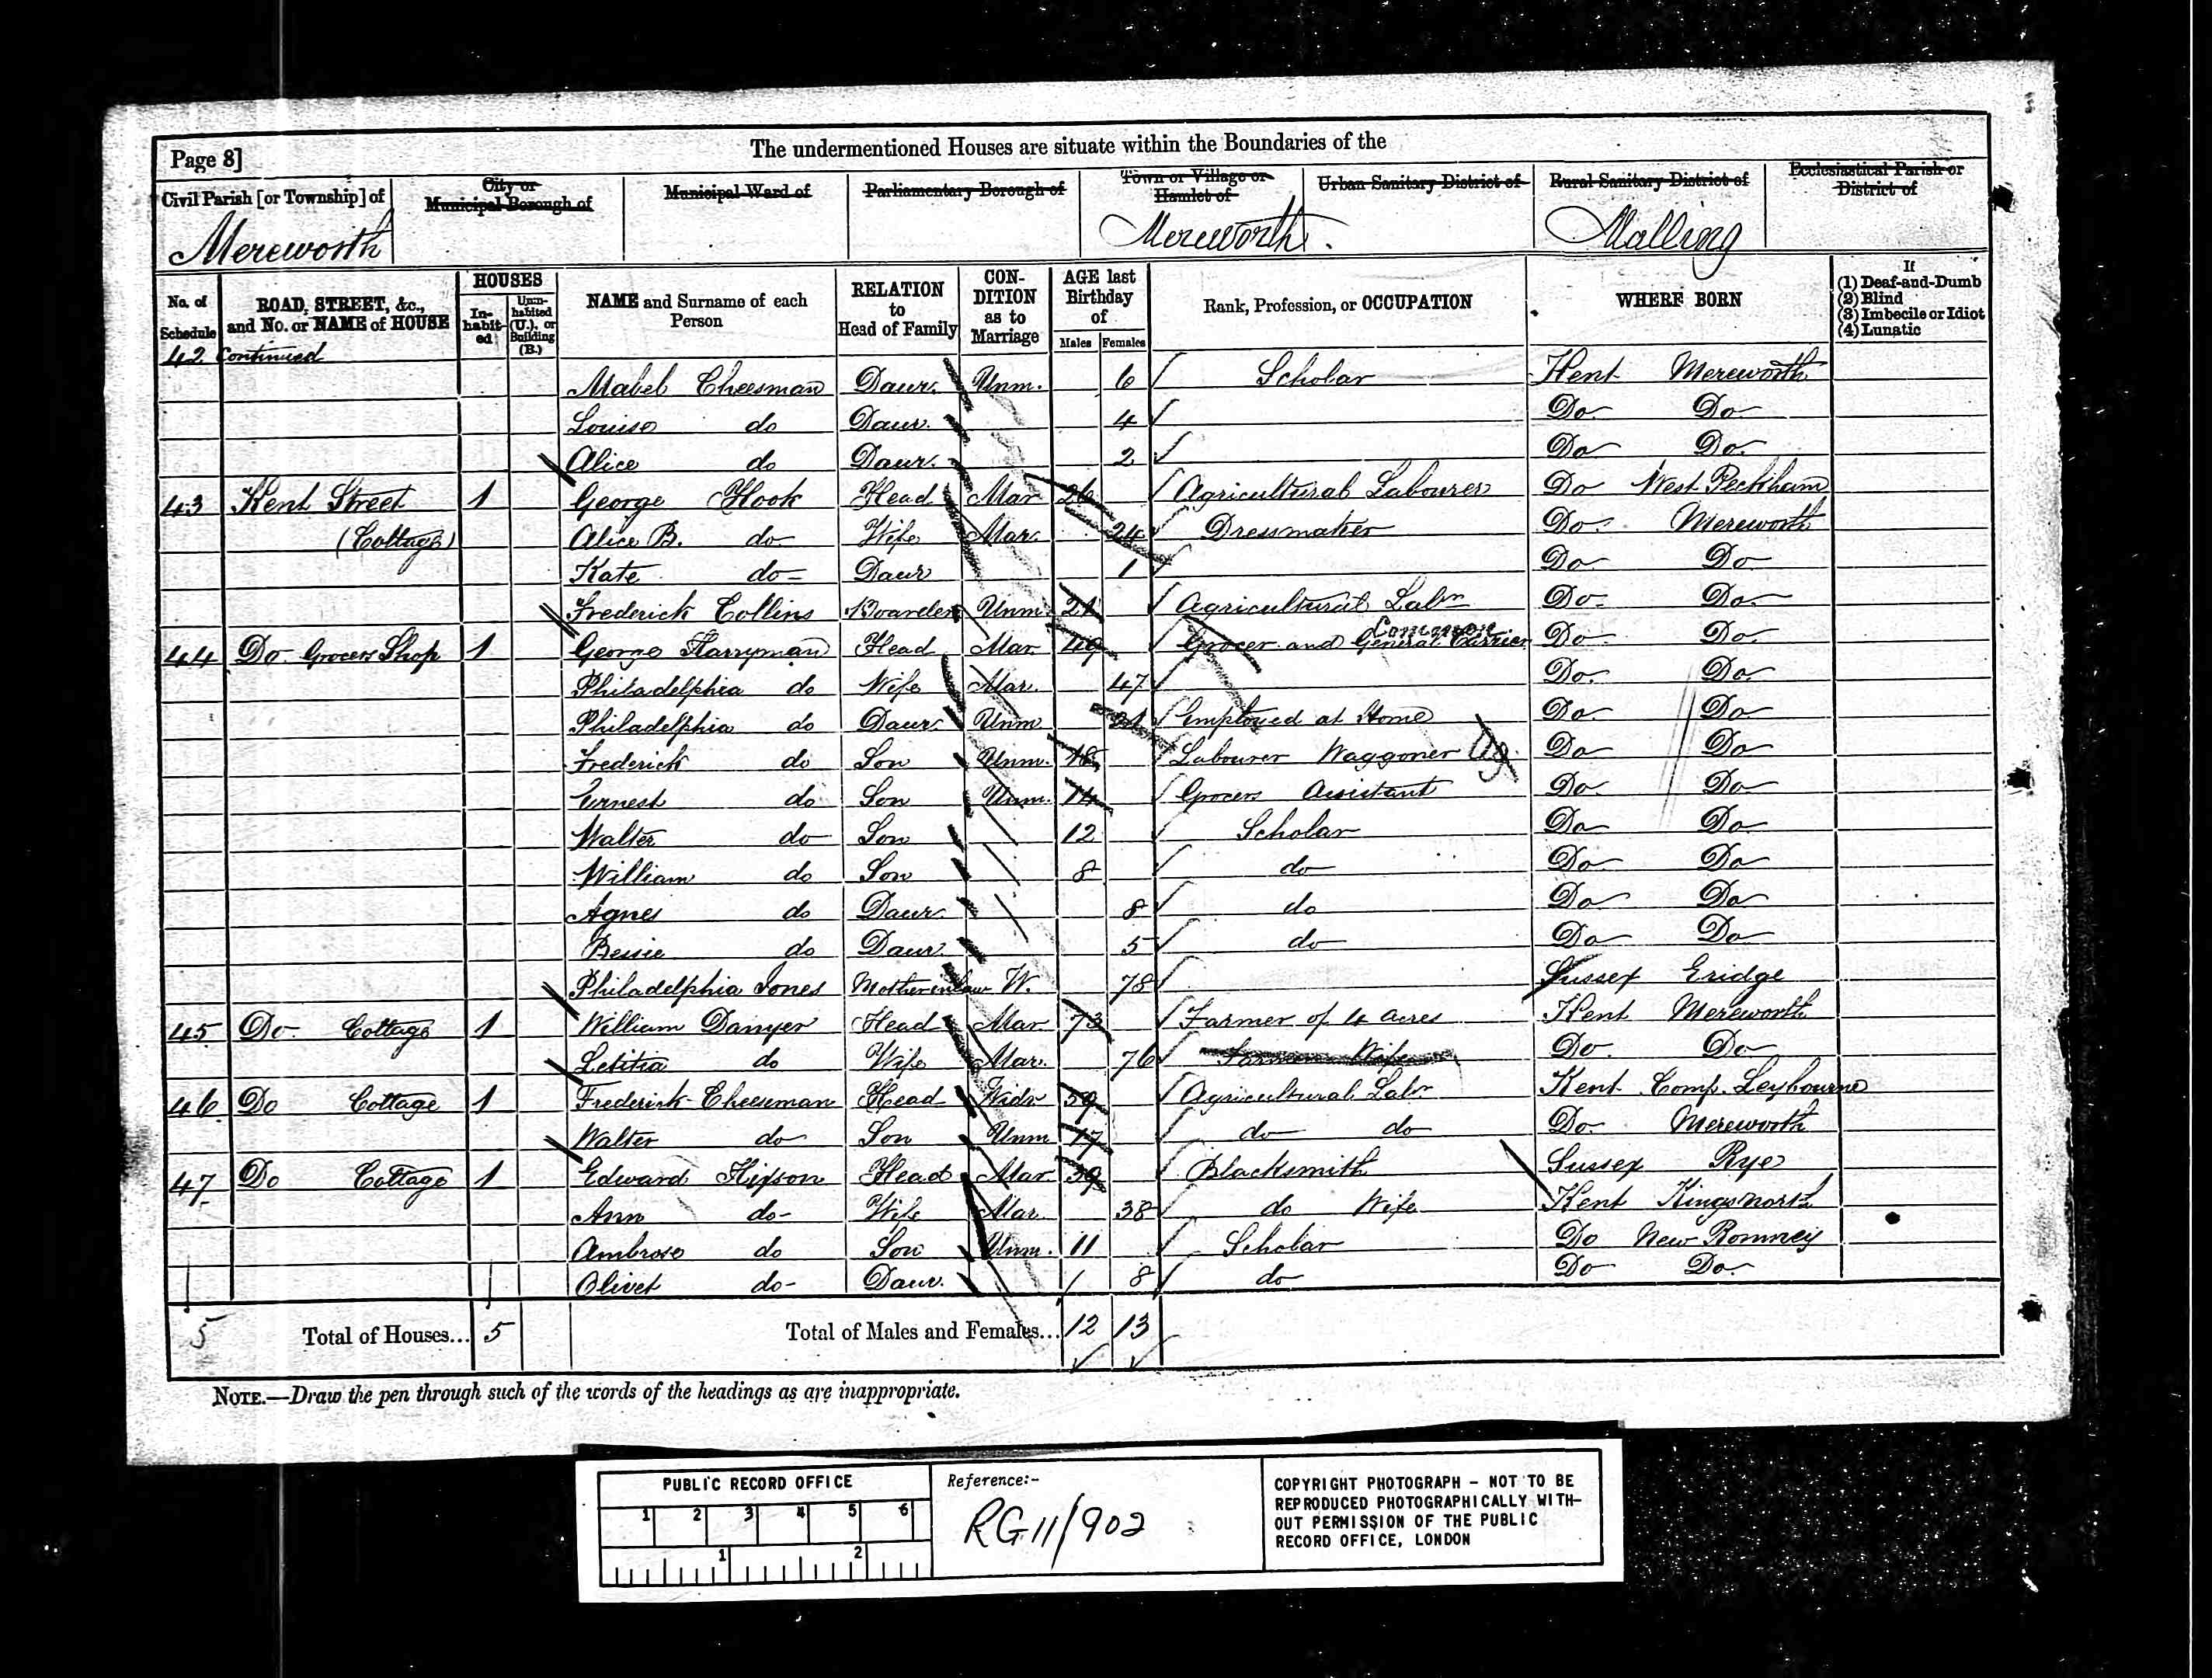 Page 8]
The undermentioned Houses are situate within the Boundaries of the
Civil Parish [or Township] of
City or Municipal Borough of
Municipal Ward of
Parliamentary Borough of
Town or Village or Hamlet of
Urban Sanitary District of
Rural Sanitary District of
Ecclesiastical Parish or District of
Mereworth Mereworth. Malling
No. of Schedule
ROAD, STREET, &c., and No. or NAME of HOUSE
HOUSES
In-habit-ed
Unin-habited (U.), or Building (B.)
NAME and Surname of each Person
RELATION to Head of Family
CON-DITION as to Marriage
AGE last Birthday of
Males Females
Rank, Profession, or OCCUPATION
WHERE BORN
If
(1) Deaf-and-Dumb
(2) Blind
(3) Imbecile or Idiot
(4) Lunatic
42 Continued
Mabel Cheesman Daur. Unm. 6 Scholar Kent Mereworth
Louise do Daur. 4 Do Do
Alice do Daur. 2 Do Do.
43 Kent Street 1 George Hook Head Mar 26 Agricultural Labourer Do West Peckham
(Cottage) Alice B. do Wife Mar. 24 Dressmaker Do. Mereworth
Kate do Daur 1 Do Do
Frederick Collins Boarder Unm. 21 Agricultural Labr Do Do
44 Do. Grocers Shop 1 George Harryman Head Mar 49 Grocer and General Common Carrier Do Do.
Philadelphia do Wife Mar. 47 Do. Do.
Philadelphia do Daur. Unm 21 Employed at Home Do Do
Frederick do Son Unm. 18 Labourer Waggoner Ag. Do Do
Ernest do Son Unm. 14 Grocers Assistant Do Do
Walter do Son 12 Scholar Do Do
William do Son 8 do Do Do
Agnes do Daur. 8 do Do Do
Bessie do Daur. 5 do Do Do
Philadelphia Jones Mother in law W. 78 Sussex Eridge
45 Do. Cottage 1 William Danyer Head Mar 73 Farmer of 4 acres Kent Mereworth
Letitia do Wife Mar. 76 Farmers Wife Do. Do
46 Do Cottage 1 Frederick Cheesman Head Widr 59 Agricultural Labr Kent Comp. Leybourne
Walter do Son Unm 17 do do Do. Mereworth
47 Do Cottage 1 Edward Hixson Head Mar 39 Blacksmith Sussex Rye
Ann do Wife Mar. 38 do Wife Kent Kingsnorth
Ambrose do Son Unm. 11 Scholar Do New Romney
Olivet do Daur. 8 do Do Do.
5 Total of Houses... 5 Total of Males and Females... 12 13
NOTE.—Draw the pen through such of the words of the headings as are inappropriate.
PUBLIC RECORD OFFICE
1 2 3 4 5 6
1 2
Reference:-
RG11/902
COPYRIGHT PHOTOGRAPH - NOT TO BE
REPRODUCED PHOTOGRAPHICALLY WITH-
OUT PERMISSION OF THE PUBLIC
RECORD OFFICE, LONDON